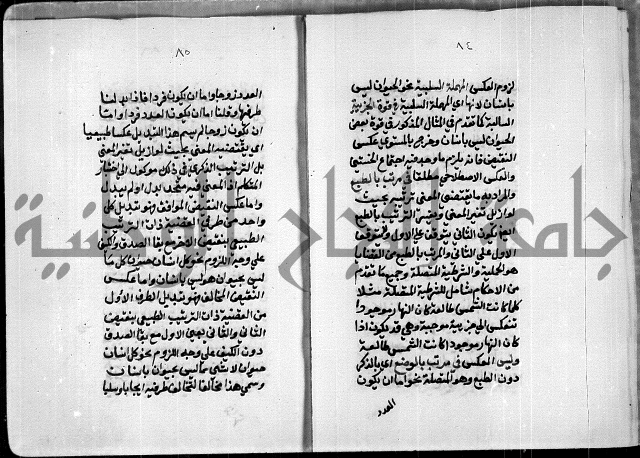 ٨٤
لزوم العكس المهملة السلبية نحو الحيوان ليس
بانسان لانها اي المهملة السلبية في قوة الجزئية
السالبة كما تقدم في المثال المذكور في قوة بعض
الحيوان ليس بانسان وخرج بالمستوي عكس
النقيض فانه يلزم ما وجد فيه اجتماع الخستين
والعكس الاصطلاحي مطلقا في مرتب بالطبع
والمراد به ما يقتضي المعنى ترتيبه بحيث
لو ازيل تغير المعنى ويفسر الترتيب بالطبع
ايضا بكون الثاني يتوقف على الاول ولا يتوقف
الاول على الثاني والمرتب بالطبع من القضايا
هو الحملية والشرطية المتصلة وجميع ما تقدم
من الاحكام شامل للشرطية المتصلة مثلا
كلما كانت الشمس طالعة كان النهار موجودا
تنعكس الى جزئية موجبة وهي قد يكون اذا
كان النهار موجودا كانت الشمس طالعة
وليس العكس في مرتب بالوضع اي بالذكر
دون الطبع وهو المنفصلة نحو اما ان يكون
العدد
٨٥
العدد زوجا واما ان يكون فردا فاذا بدلنا
طرفيها وقلنا اما ان يكون العدد فردا واما
ان يكون زوجا لم يسم هذا التبديل عكسا طبيعيا
اي يقتضيه المعنى بحيث لو ازيل يتغير المعنى
بل الترتيب الذكري في ذلك موكول الى اختيار
المتكلم اذ المعنى فيه متحد بدل او لم يبدل
واما عكس النقيض الموافق فهو تبديل كل
واحد من طرفي القضية ذات الترتيب
الطبيعي بنقيض الاخر مع بقاء الصدق والكيف
على وجه اللزوم نحو كل انسان حيوان كل ما
ليس بحيوان هو ليس بانسان واما عكس
النقيض المخالف فهو تبديل الطرف الاول
من القضية ذات الترتيب الطبيعي بنقيض
الثاني والثاني بعين الاول مع بقاء الصدق
دون الكيف على وجه اللزوم نحو كل انسان
حيوان لا شيء مما ليس بحيوان بانسان
وسمي هذا مخالفا لتخالف طرفيه ايجابا وسلبا
جامعة النجاح الوطنية